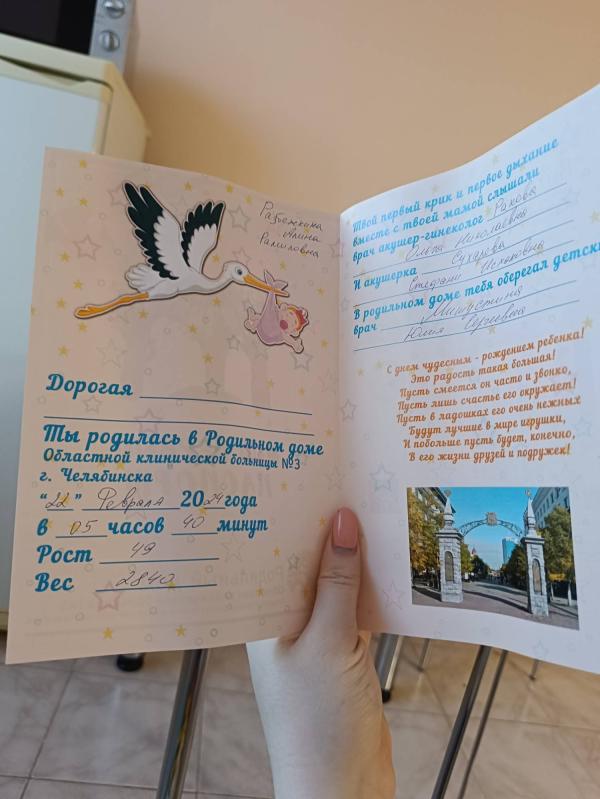 Разбежкина
Алина
Рамиловна
Дорогая
Ты родилась в Родильном доме
Областной клинической больницы №3
г. Челябинска
"22" Февраля 2024 года
в 05 часов 40 минут
Рост 49
Вес 2840
Твой первый крик и первое дыхание
вместе с твоей мамой слышали
врач акушер-гинеколог
Ольга Николаевна
И акушерка Сухарова
В родильном доме тебя оберегал детский
врач
Юлия Сергеевна
С днем чудесным - рождением ребенка!
Это радость такая большая!
Пусть смеется он часто и звонко,
Пусть лишь счастье его окружает!
Пусть в ладошках его очень нежных
Будут лучшие в мире игрушки,
И побольше пусть будет, конечно,
В его жизни друзей и подружек!